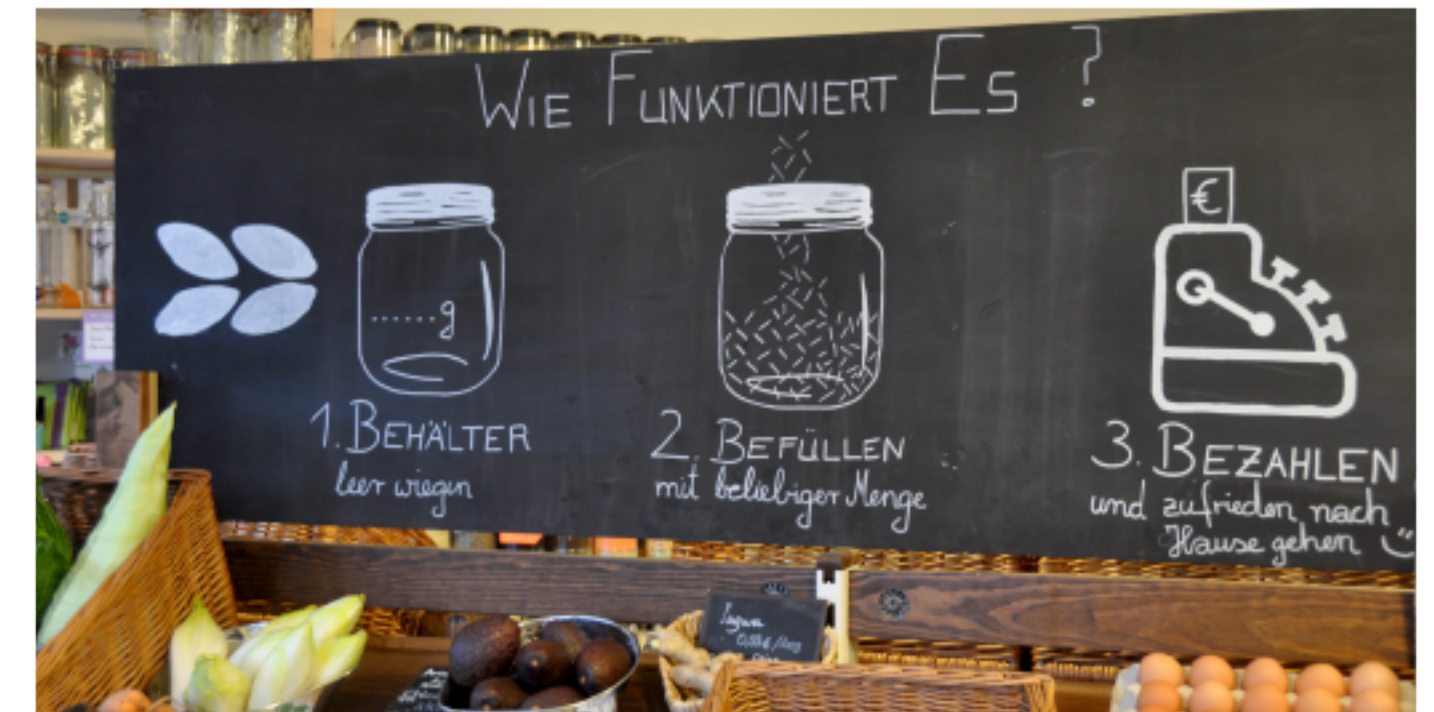 Wie Funktioniert Es ?
€
......g
1. Behälter
leer wiegen
2. Befüllen
mit beliebiger Menge
3. Bezahlen
und zufrieden nach
Hause gehen